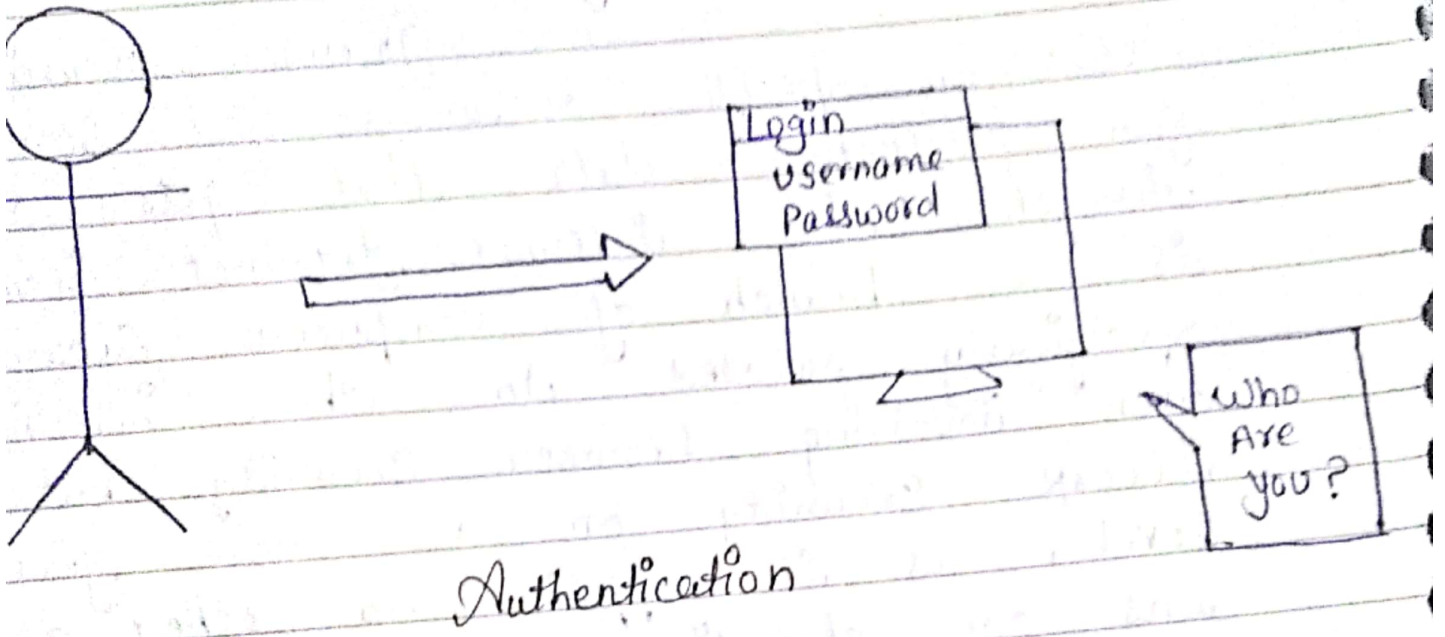 Login
username
Password
Who
Are
you?
Authentication